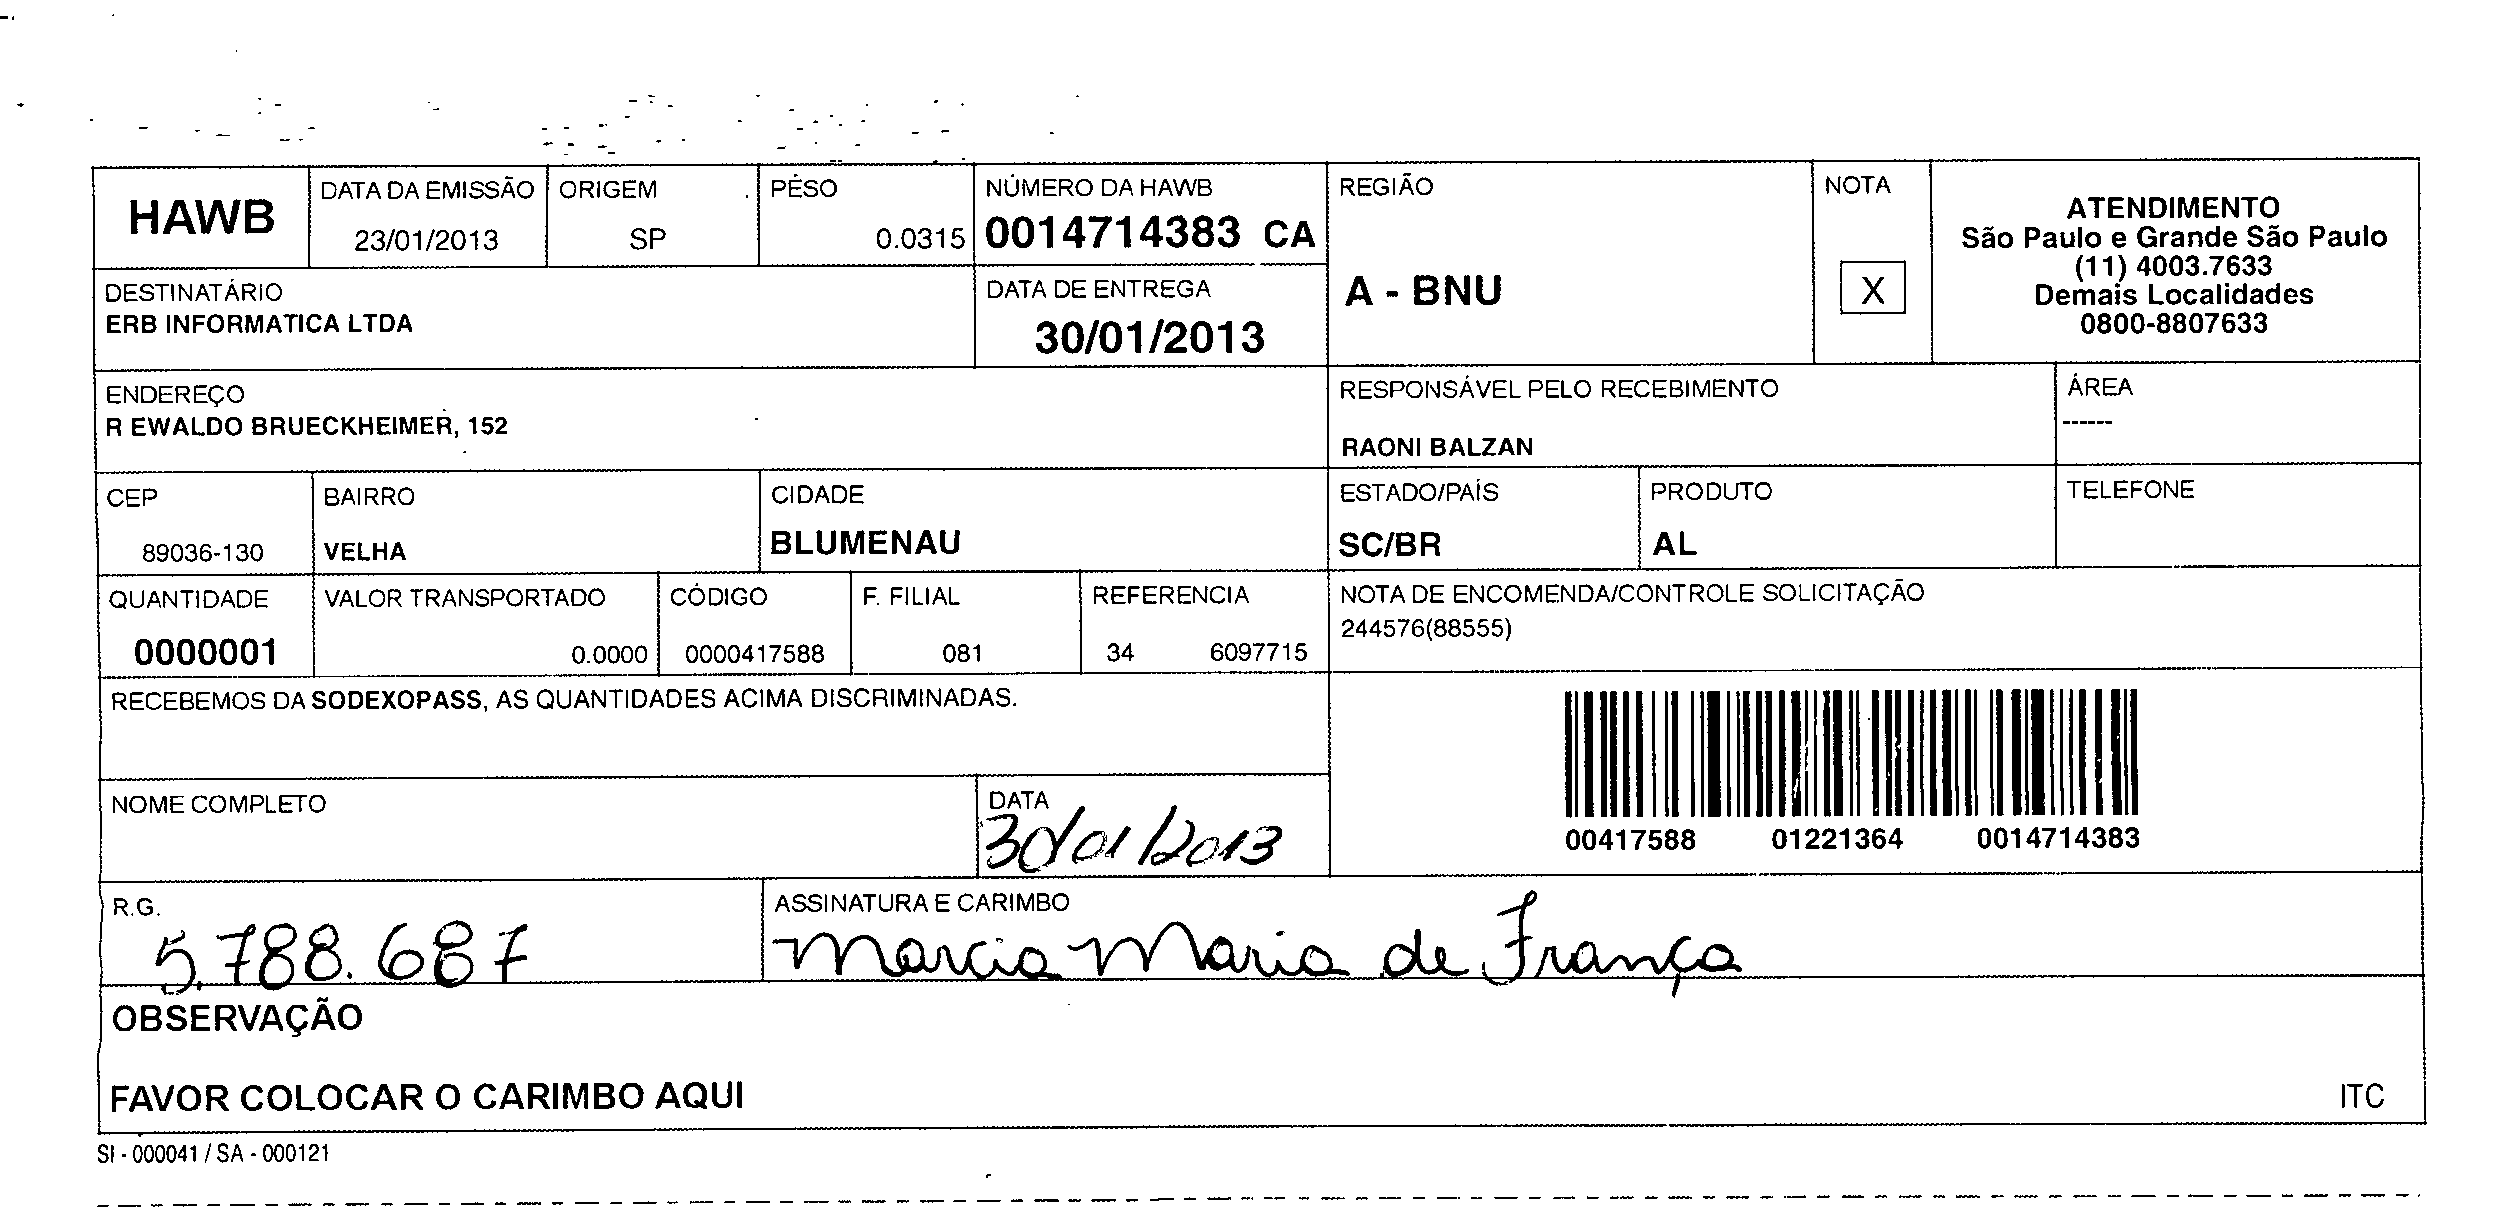 HAWB
DATA DA EMISSÃO
23/01/2013
ORIGEM
SP
PESO
0.0315
NÚMERO DA HAWB
0014714383 CA
REGIÃO
A - BNU
NOTA
X
ATENDIMENTO
São Paulo e Grande São Paulo
(11) 4003.7633
Demais Localidades
0800-8807633
DESTINATÁRIO
ERB INFORMATICA LTDA
DATA DE ENTREGA
30/01/2013
ENDEREÇO
R EWALDO BRUECKHEIMER, 152
RESPONSÁVEL PELO RECEBIMENTO
RAONI BALZAN
ÁREA
------
CEP
89036-130
BAIRRO
VELHA
CIDADE
BLUMENAU
ESTADO/PAÍS
SC/BR
PRODUTO
AL
TELEFONE
QUANTIDADE
0000001
VALOR TRANSPORTADO
0.0000
CÓDIGO
0000417588
F. FILIAL
081
REFERENCIA
34 6097715
NOTA DE ENCOMENDA/CONTROLE SOLICITAÇÃO
244576(88555)
RECEBEMOS DA SODEXOPASS, AS QUANTIDADES ACIMA DISCRIMINADAS.
00417588 01221364 0014714383
NOME COMPLETO
DATA
30/01/2013
R.G.
5.788.687
ASSINATURA E CARIMBO
Marcia Maria de França
OBSERVAÇÃO
FAVOR COLOCAR O CARIMBO AQUI
ITC
SI - 000041 / SA - 000121